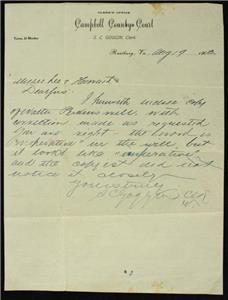 CLERK'S OFFICE
Campbell County Court
S. C. GOGGIN, Clerk
Rustburg, Va., Aug 9
Messrs Lee & Howard
Dear Sirs:
I herewith inclose copy
of will, with
correction made as requested
You are right - the word is
"imperative" in the will, but
it looks like "imperative"
and the copyist did not
notice it closely
Yours truly
S C Goggin Clk